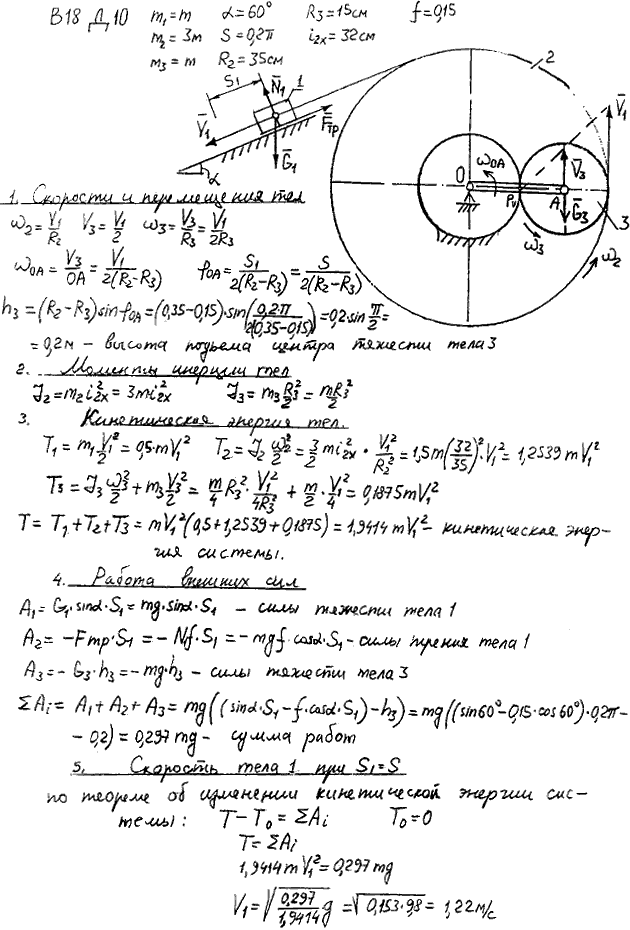 В18 Д 10 m₁=m α=60° R₃=15см f=0,15
m₂=3m S=0,2π i₂ₓ=32см
m₃=m R₂=35см
S₁ N̄₁ 1 2
V̄₁ F̄тр V̄₁
Ḡ₁ α
O ω̄OA V̄₃
Pv A Ḡ₃ 3
ω̄₃ ω̄₂
1. Скорости и перемещения тел
ω₂=V₁/R₂ V₃=V₁/2 ω₃=V₃/R₃=V₁/2R₃
ωOA=V₃/OA=V₁/2(R₂-R₃) φOA=S₁/2(R₂-R₃)=S/2(R₂-R₃)
h₃=(R₂-R₃)sinφOA=(0,35-0,15)·sin(0,2π/2(0,35-0,15))=0,2·sin π/2=
=0,2м - высота подьема центра тяжести тела 3
2. Моменты инерции тел
J₂=m₂i₂ₓ²=3mi₂ₓ² J₃=m₃R₃²/2=mR₃²/2
3. Кинетическая энергия тел.
T₁=m₁V₁²/2=0,5·mV₁² T₂=J₂ω₂²/2=3/2 mi₂ₓ²·V₁²/R₂²=1,5m(32/35)²·V₁²=1,2539mV₁²
T₃=J₃ω₃²/2+m₃V₃²/2=m/4 R₃²·V₁²/4R₃²+m/2·V₁²/4=0,1875mV₁²
T=T₁+T₂+T₃=mV₁²(0,5+1,2539+0,1875)=1,9414mV₁²- кинетическая энер-
гия системы.
4. Работа внешних сил
A₁=G₁·sinα·S₁=mg·sinα·S₁ - силы тяжести тела 1
A₂=-Fтр·S₁=-Nf·S₁=-mgf·cosα·S₁- силы трения тела 1
A₃=-G₃·h₃=-mg·h₃ - силы тяжести тела 3
ΣAᵢ=A₁+A₂+A₃=mg((sinα·S₁-f·cosα·S₁)-h₃)=mg((sin60°-0,15·cos60°)·0,2π-
-0,2)=0,297mg- сумма работ
5. Скорость тела 1 при S₁=S
по теореме об изменении кинетической энергии сис-
темы: T-T₀=ΣAᵢ T₀=0
T=ΣAᵢ
1,9414mV₁²=0,297mg
V₁=√(0,297/1,9414 g)=√(0,153·9,8)=1,22м/с